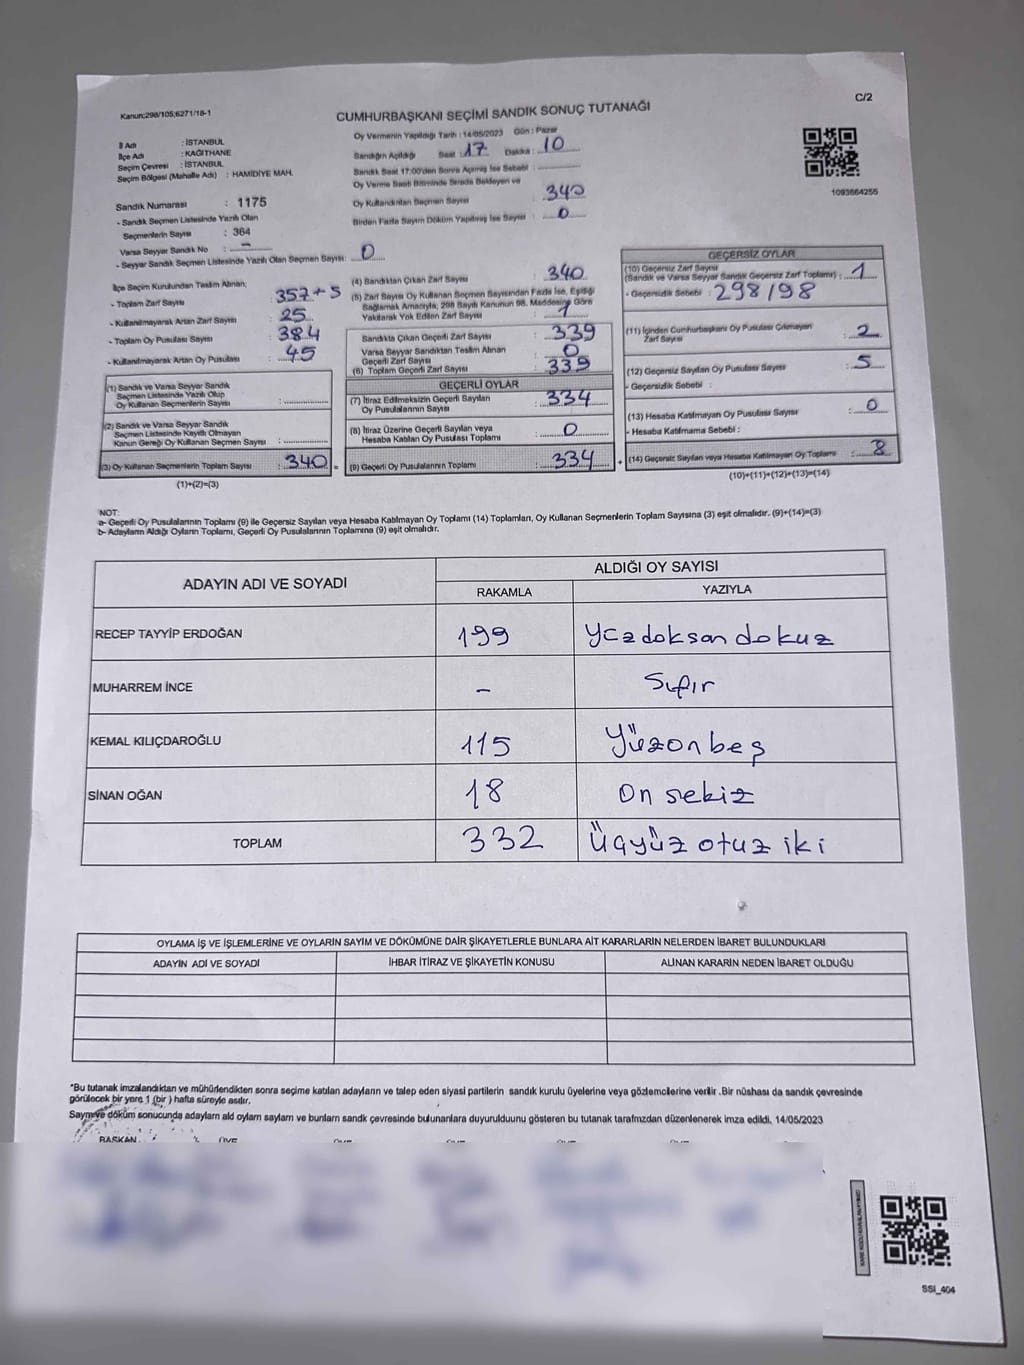 Kanun:298/105;6271/18-1
CUMHURBAŞKANI SEÇİMİ SANDIK SONUÇ TUTANAĞI
C/2
İl Adı : İSTANBUL
İlçe Adı : KAĞITHANE
Seçim Çevresi : İSTANBUL
Seçim Bölgesi (Mahalle Adı) : HAMİDİYE MAH.
Sandık Numarası : 1175
- Sandık Seçmen Listesinde Yazılı Olan
Seçmenlerin Sayısı : 364
Varsa Seyyar Sandık No : -
- Seyyar Sandık Seçmen Listesinde Yazılı Olan Seçmen Sayısı: 0
Oy Vermenin Yapıldığı Tarih : 14/05/2023 Gün : Pazar
Sandığın Açıldığı Saat : 17 Dakika : 10
Sandık Saat 17:00'den Sonra Açılmış İse Sebebi :
Oy Verme Saati Bitiminde Sırada Bekleyen ve
Oy Kullandırılan Seçmen Sayısı : 340
Birden Fazla Sayım Döküm Yapılmış İse Sayısı : 0
1093664256
İlçe Seçim Kurulundan Teslim Alınan;
- Toplam Zarf Sayısı : 357+5
- Kullanılmayarak Artan Zarf Sayısı : 25
- Toplam Oy Pusulası Sayısı : 384
- Kullanılmayarak Artan Oy Pusulası : 45
(1) Sandık ve Varsa Seyyar Sandık
Seçmen Listesinde Yazılı Olup
Oy Kullanan Seçmenlerin Sayısı :
(2) Sandık ve Varsa Seyyar Sandık
Seçmen Listesinde Kayıtlı Olmayan
Kanun Gereği Oy Kullanan Seçmen Sayısı :
(3) Oy Kullanan Seçmenlerin Toplam Sayısı : 340 =
(1)+(2)=(3)
(4) Sandıktan Çıkan Zarf Sayısı : 340
(5) Zarf Sayısı Oy Kullanan Seçmen Sayısından Fazla İse, Eşitliği
Sağlamak Amacıyla; 298 Sayılı Kanunun 98. Maddesine Göre
Yakılarak Yok Edilen Zarf Sayısı : 1
Sandıkta Çıkan Geçerli Zarf Sayısı : 339
Varsa Seyyar Sandıktan Teslim Alınan
Geçerli Zarf Sayısı : 0
(6) Toplam Geçerli Zarf Sayısı : 339
GEÇERLİ OYLAR
(7) İtiraz Edilmeksizin Geçerli Sayılan
Oy Pusulalarının Sayısı : 334
(8) İtiraz Üzerine Geçerli Sayılan veya
Hesaba Katılan Oy Pusulası Toplamı : 0
(9) Geçerli Oy Pusulalarının Toplamı : 334 +
GEÇERSİZ OYLAR
(10) Geçersiz Zarf Sayısı
(Sandık ve Varsa Seyyar Sandık Geçersiz Zarf Toplamı) : 1
- Geçersizlik Sebebi : 298/98
(11) İçinden Cumhurbaşkanı Oy Pusulası Çıkmayan
Zarf Sayısı : 2
(12) Geçersiz Sayılan Oy Pusulası Sayısı : 5
- Geçersizlik Sebebi :
(13) Hesaba Katılmayan Oy Pusulası Sayısı : 0
- Hesaba Katılmama Sebebi :
(14) Geçersiz Sayılan veya Hesaba Katılmayan Oy Toplamı : 8
(10)+(11)+(12)+(13)=(14)
NOT:
a- Geçerli Oy Pusulalarının Toplamı (9) ile Geçersiz Sayılan veya Hesaba Katılmayan Oy Toplamı (14) Toplamları, Oy Kullanan Seçmenlerin Toplam Sayısına (3) eşit olmalıdır. (9)+(14)=(3)
b- Adayların Aldığı Oyların Toplamı, Geçerli Oy Pusulalarının Toplamına (9) eşit olmalıdır.
ADAYIN ADI VE SOYADI ALDIĞI OY SAYISI
RAKAMLA YAZIYLA
RECEP TAYYİP ERDOĞAN 199 Yüzdoksan dokuz
MUHARREM İNCE - Sıfır
KEMAL KILIÇDAROĞLU 115 Yüzonbeş
SİNAN OĞAN 18 On sekiz
TOPLAM 332 Üçyüz otuz iki
OYLAMA İŞ VE İŞLEMLERİNE VE OYLARIN SAYIM VE DÖKÜMÜNE DAİR ŞİKAYETLERLE BUNLARA AİT KARARLARIN NELERDEN İBARET BULUNDUKLARI
ADAYIN ADI VE SOYADI İHBAR İTİRAZ VE ŞİKAYETİN KONUSU ALINAN KARARIN NEDEN İBARET OLDUĞU
*Bu tutanak imzalandıktan ve mühürlendikten sonra seçime katılan adayların ve talep eden siyasi partilerin sandık kurulu üyelerine veya gözlemcilerine verilir .Bir nüshası da sandık çevresinde
görülecek bir yere 1 (bir ) hafta süreyle asılır.
Sayım ve döküm sonucunda adayların aldı oyların sayların ve bunların sandık çevresinde bulunanlara duyurulduunu gösteren bu tutanak tarafmzdan düzenlenerek imza edildi. 14/05/2023
BAŞKAN ÜYE ÜYE ÜYE ÜYE ÜYE ÜYE
SSI_404